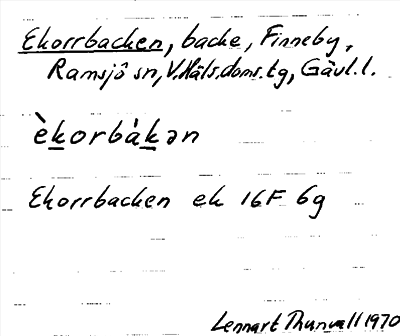 Ekorrbacken, backe, Finneby,
Ramsjö sn, V.Häls.doms.tg, Gävl.l.
èkorbàkən
Ekorrbacken ek 16F 6g
Lennart Thunvall 1970